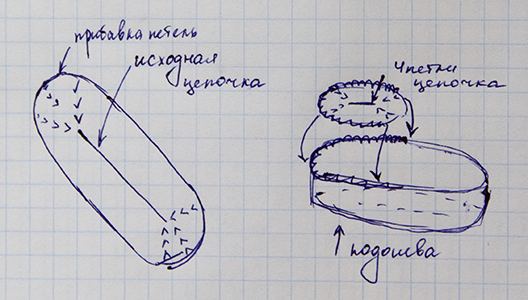 прибавка петель
исходная
цепочка
4 петли
цепочка
подошва